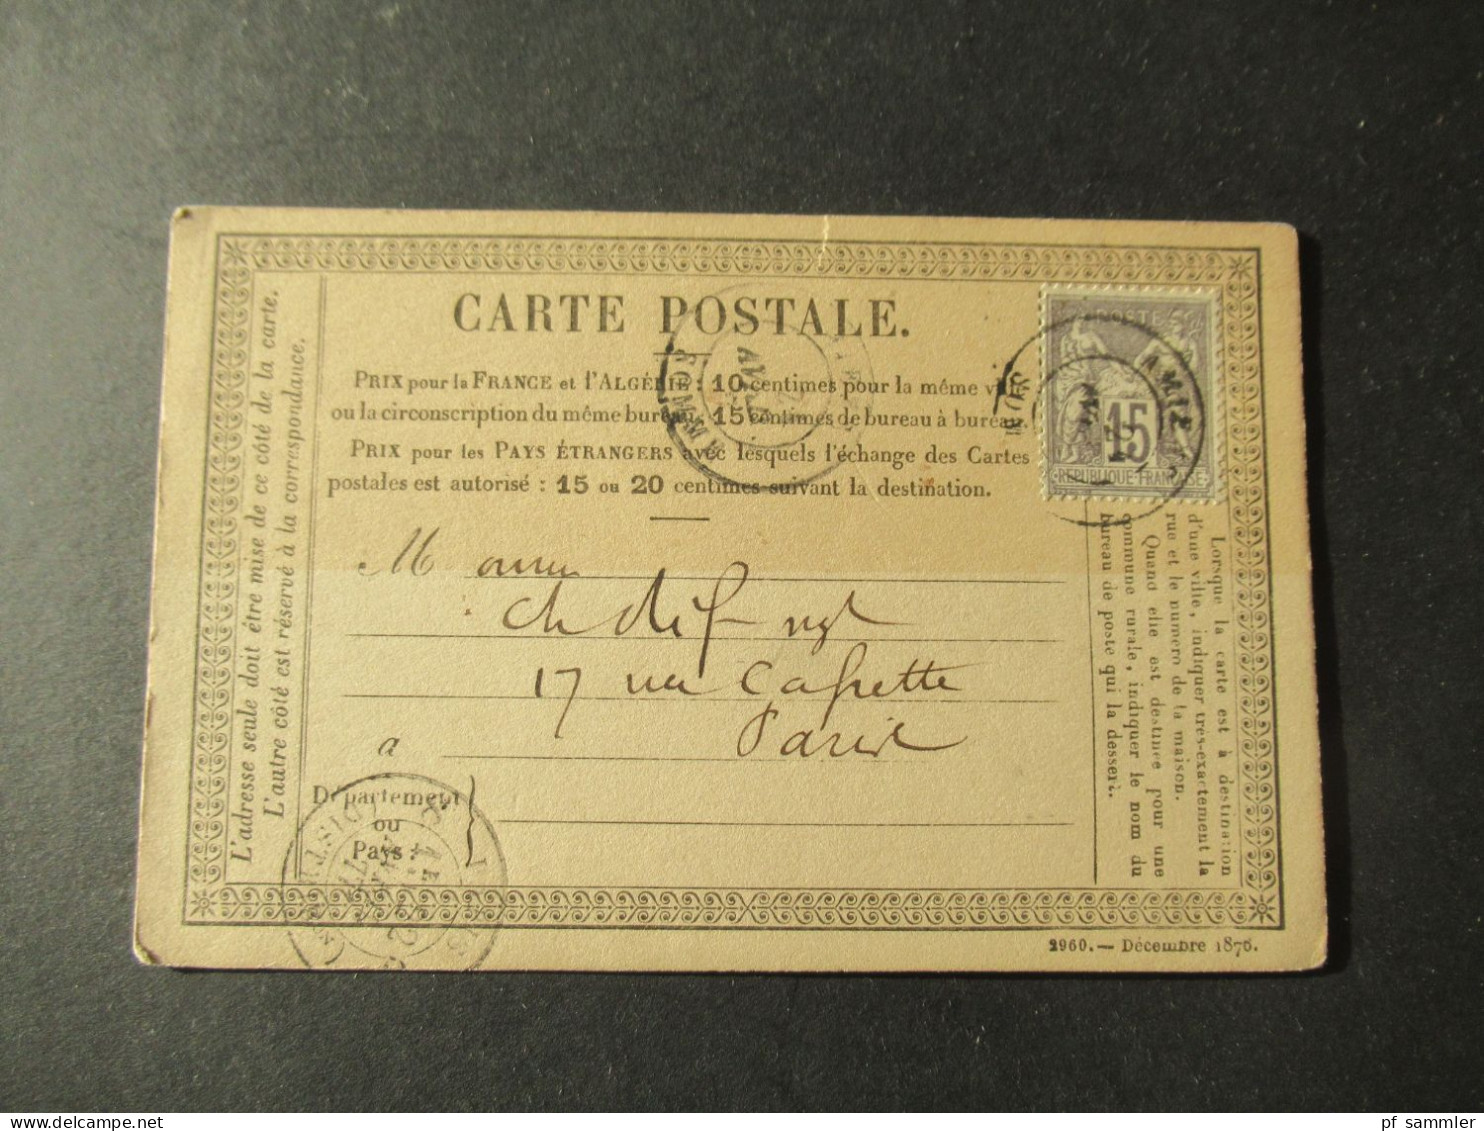 CARTE POSTALE.
PRIX pour la FRANCE et l'ALGÉRIE : 10 centimes pour la même ville
ou la circonscription du même bureau, 15 centimes de bureau à bureau.
PRIX pour les PAYS ÉTRANGERS avec lesquels l'échange des Cartes
postales est autorisé : 15 ou 20 centimes suivant la destination.
L'adresse seule doit être mise de ce côté de la carte.
L'autre côté est réservé à la correspondance.
POSTE
15
REPUBLIQUE FRANÇAISE
AMIENS
Lorsque la carte est à destination
d'une ville, indiquer très-exactement la
rue et le numéro de la maison.
Quand elle est destinée pour une
commune rurale, indiquer le nom du
bureau de poste qui la dessert.
M
17 rue Cafrette
à Paris
Département
ou
Pays :
2960.— Décembre 1876.
https://www.delcampe.net
pf_sammler